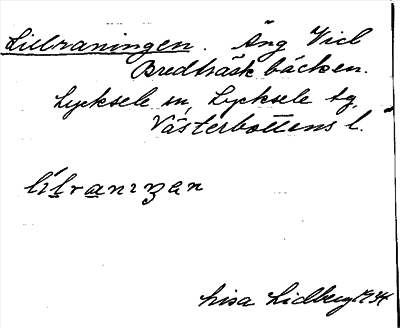 Lillraningen. Äng Vid
Bredträskbäcken.
Lycksele sn, Lycksele tg,
Västerbottens l.
lílranizan
Lisa Lidberg 1934